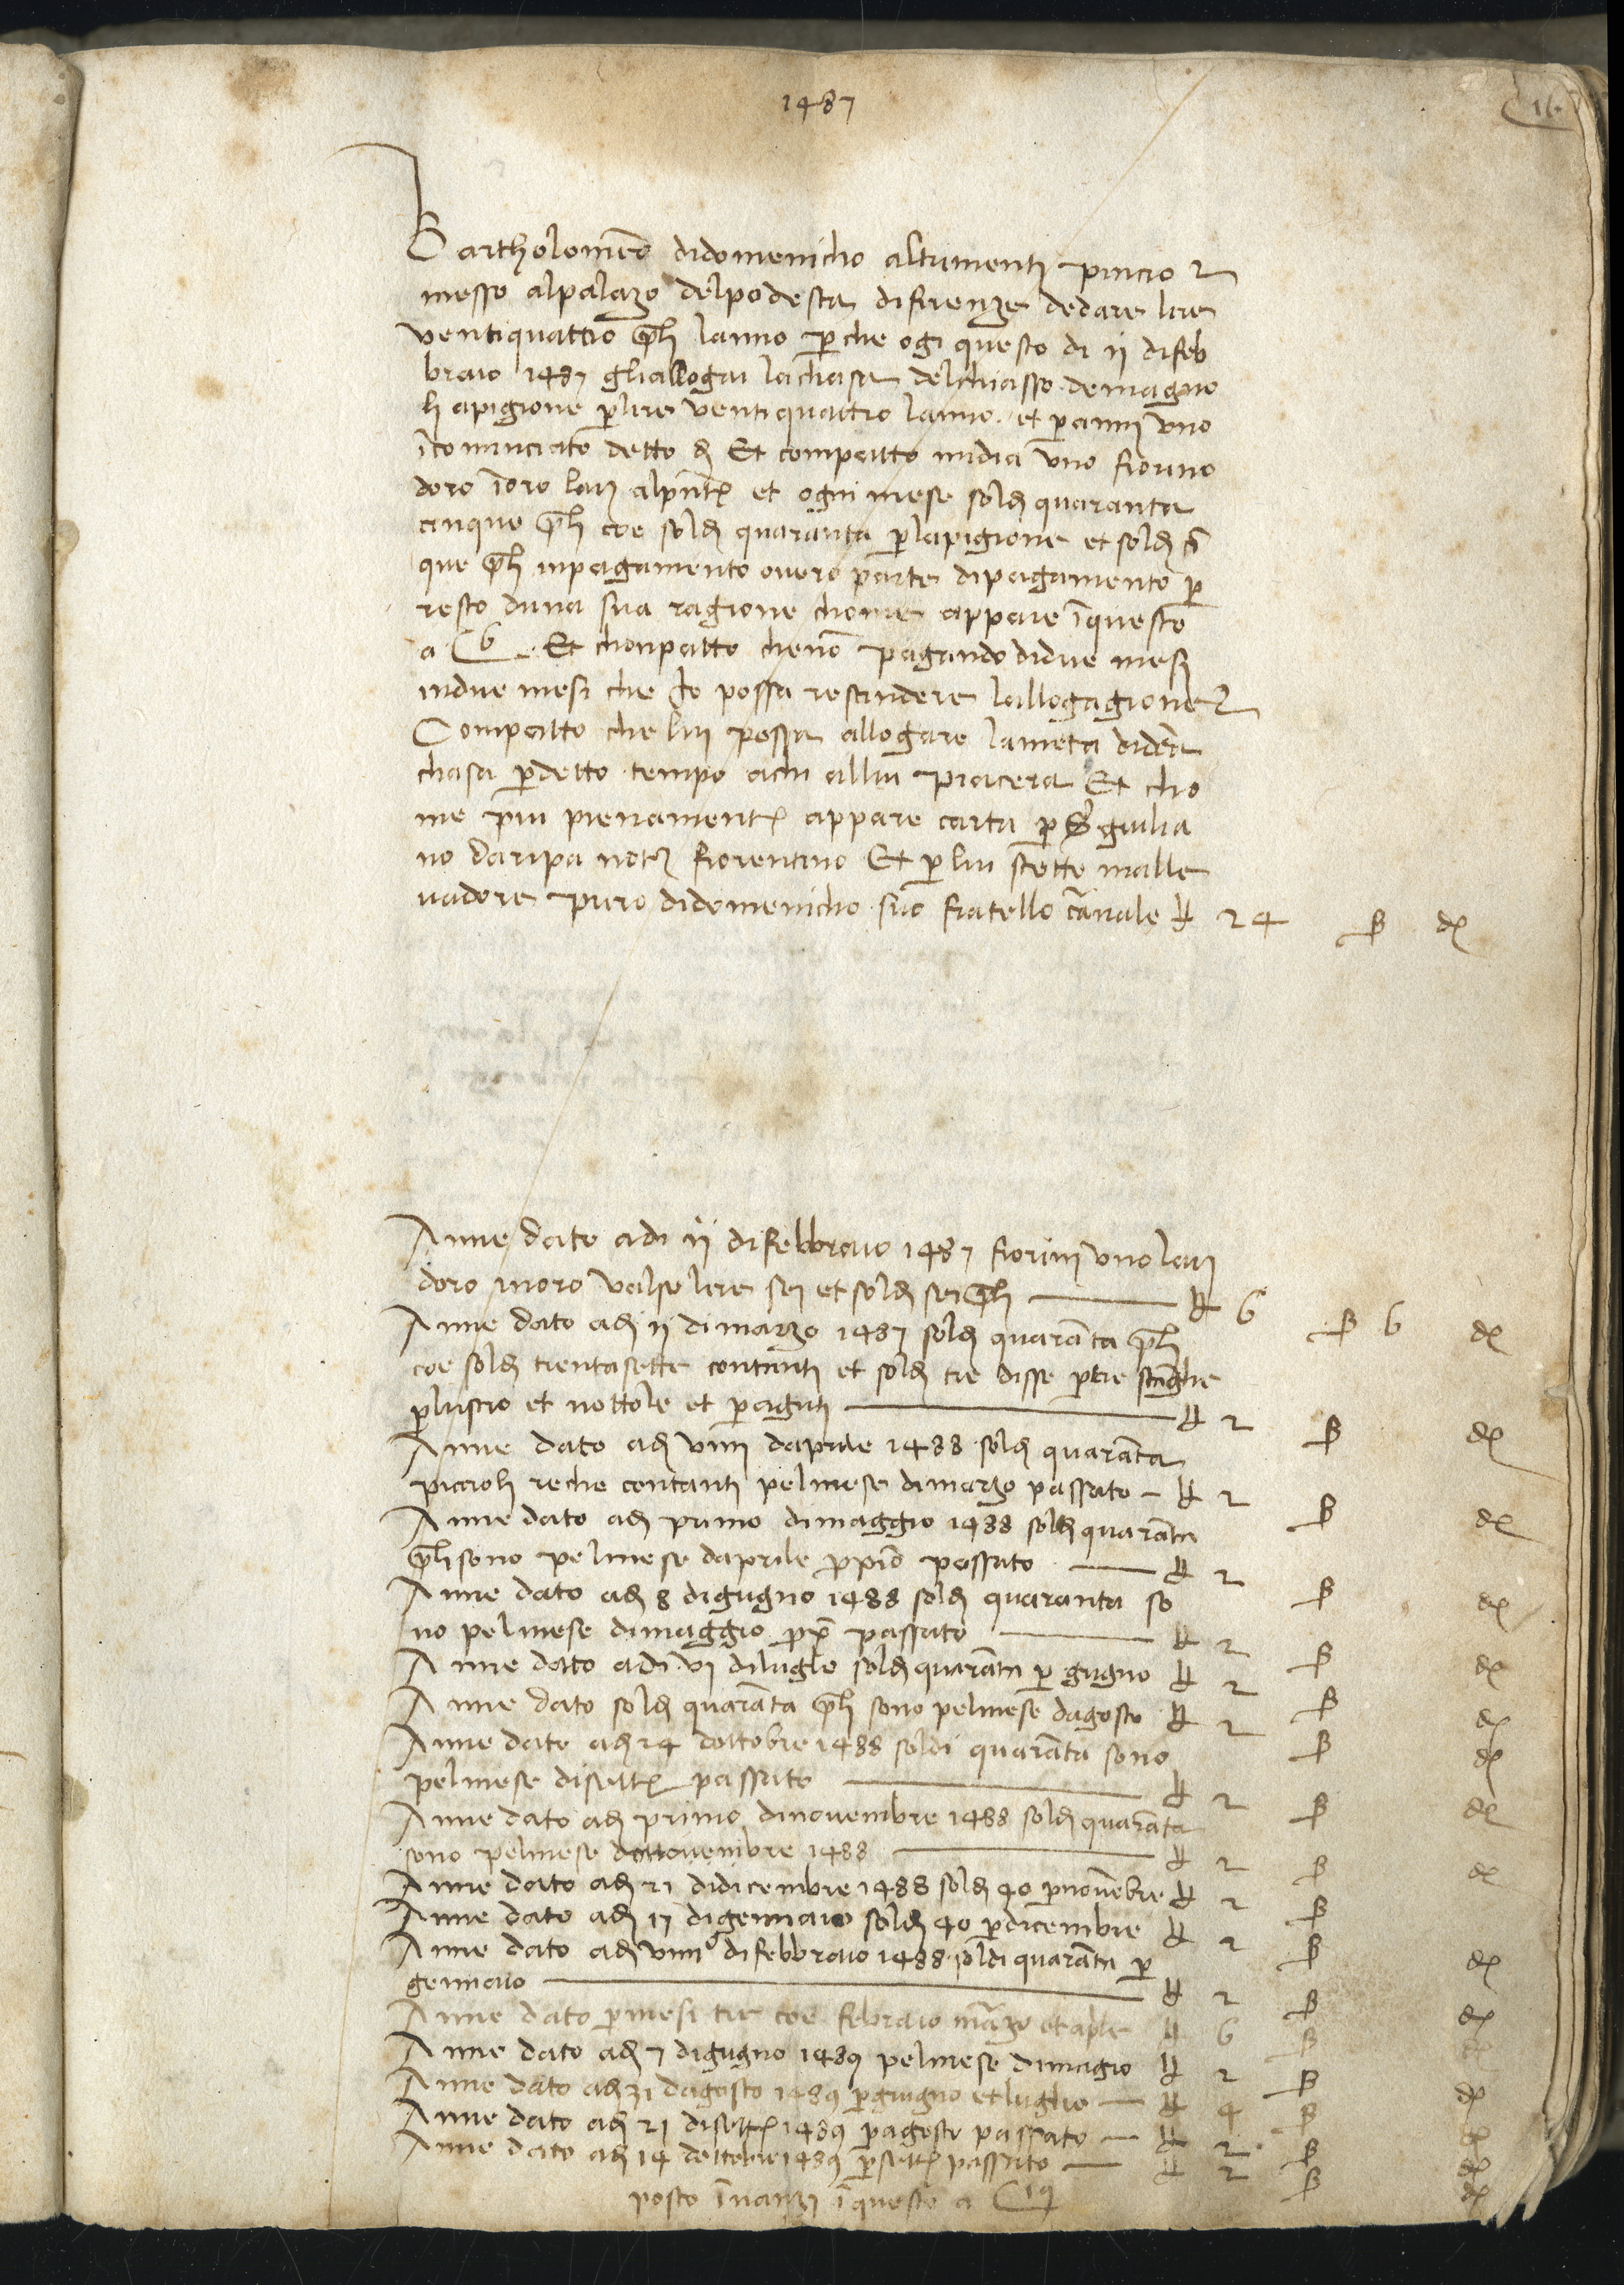 1487
16
Bartholomeo didomenicho altrimenti
messo alpalazo delpodesta difirenze dedare lire
ventiquattro lanno perche ogi questo di ii difeb
braio 1487 gliallogai lachasa delchiasso demagno
li apigione per lire ventiquattro lanno et per anni uno
īcominciato detto di Et compatto midia uno fiorino
doro ī oro et ogni mese soldi quaranta
cinque coe soldi quaranta perlapigione et soldi cī
que inpagamento overo parte dipagamento per
resto duna sua ragione chome appare ī questo
a C 6. Et chonpatto chenō pagando didue mesi
indue mesi che Io possa rescindere lallogagione
Compatto che lui possa allogare lameta didetta
chasa perdetto tempo achi allui piacera Et cho
me piu pienamente appare carta per Ser giulia
no daripa fiorentino Et per lui stette malle
vadore piero didomenicho suo fratello carnale £ 24 ß d
Anne dato adi ii difebbraio 1487 fiorini uno
doro inoro valse lire sei et soldi sei £ 6 ß 6 d
Anne dato adi ii dimarzo 1487 soldi quarāta
coe soldi trentasette contanti et soldi tre disse per tre
perluscio et nottole et peraguti £ 2 ß d
Anne dato adi viiii daprile 1488 soldi quarāta
piccioli reche contanti pelmese dimarzo passato £ 2 ß d
Anne dato adi primo dimaggio 1488 soldi quarāta
sono pelmese daprile passato £ 2 ß d
Anne dato adi 8 digugno 1488 soldi quaranta so
no pelmese dimaggio passato £ 2 ß d
Anne dato adi vi diluglo soldi quarāta per gugno £ 2 ß d
Anne dato soldi quarāta sono pelmese dagosto £ 2 ß d
Anne dato adi 24 dottobre 1488 soldi quarāta sono
pelmese disette passato £ 2 ß d
Anne dato adi primo dinovembre 1488 soldi quarāta
sono pelmese 1488 £ 2 ß d
Anne dato adi 21 didicembre 1488 soldi 40 pernovēbre £ 2 ß
Anne dato adi 17 digennaio soldi 40 perdicembre £ 2 ß d
Anne dato adi viiii° difebbraio 1488 soldi quarāta per
gennaio £ 2 ß d
Anne dato permesi tre coe febraio marzo et aple £ 6 ß d
Anne dato adi 7 digugno 1489 pelmese dimagio £ 2 ß d
Anne dato adi 31 dagosto 1489 pergiugno et luglio £ 4 ß d
Anne dato adi 21 disette 1489 peragosto passato £ 2 ß d
Anne dato adi 14 dottobre 1489 persette passato £ 2 ß d
posto īnanzi ī questo a C 19